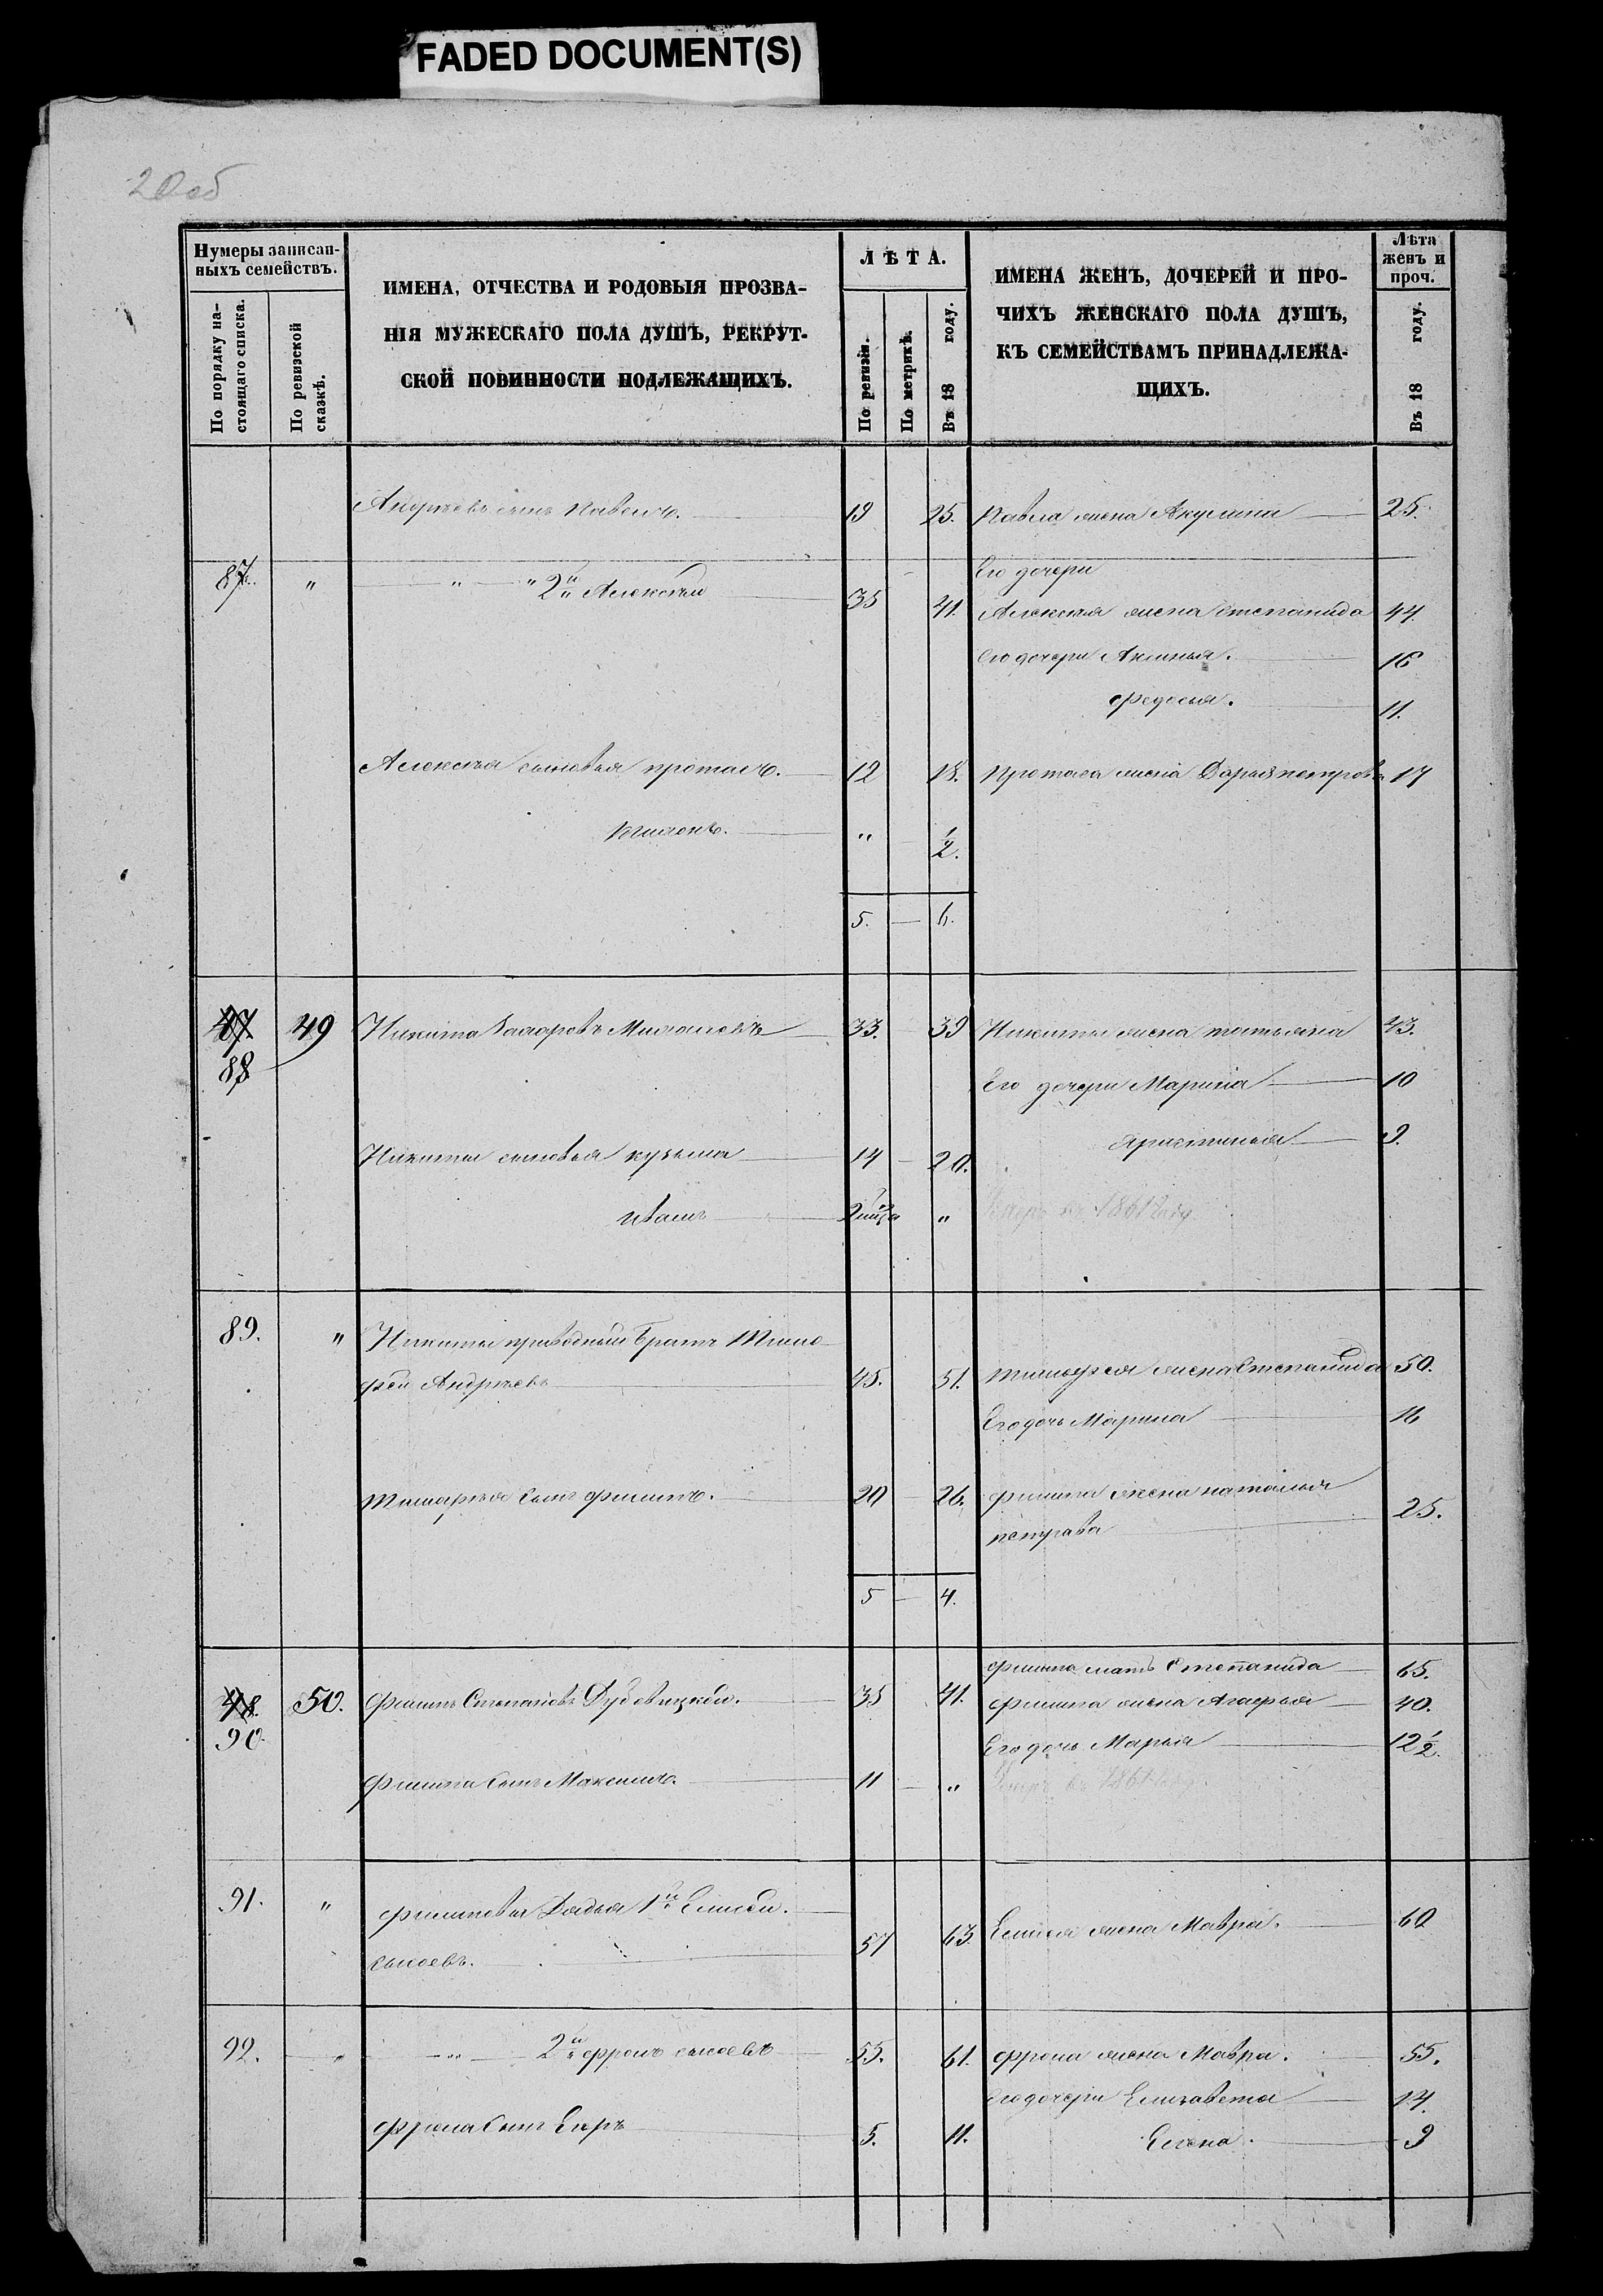 FADED DOCUMENT(S)
20 об
Нумеры записан-
ныхъ семействъ.
По порядку на-
стоящаго списка.
По ревизской
сказкѣ.
ИМЕНА, ОТЧЕСТВА И РОДОВЫЯ ПРОЗВА-
НІЯ МУЖЕСКАГО ПОЛА ДУШЪ, РЕКРУТ-
СКОЙ ПОВИННОСТИ ПОДЛЕЖАЩИХЪ.
ЛѢТА.
По ревизіи.
По метрикѣ.
Въ 18 году.
ИМЕНА ЖЕНЪ, ДОЧЕРЕЙ И ПРО-
ЧИХЪ ЖЕНСКАГО ПОЛА ДУШЪ,
КЪ СЕМЕЙСТВАМЪ ПРИНАДЛЕЖА-
ЩИХЪ.
Лѣта
женъ и
проч.
Въ 18 году.
Андреевъ сынъ Павелъ. 19 25. Павла жена Акулина 25.
Его дочери
87. " " " 2й Алексѣй 35 41. Алексѣя жена степанида 44
Его дочери Аксинья. 16
Федосья. 11.
Алексѣя сыновья протасъ. 12 18. Протаса жена Дарья петрова 17
" 1/2.
5. — 6.
47 49 Никита 33. 39 Никиты жена татьяна 43.
88
Его дочери Марина 10
9.
Никиты сыновья кузьма 14 20.
иванъ " Умеръ въ 1861 году
89. " Никиты приводный Братъ Тимо
фей Андреевъ 45. 51. Тимофея жена Степанида 50.
Его дочь Марина 16
Тимофея сынъ филипъ. 20 26. филипа жена наталья
петрова 25.
5 — 4.
филипа мать Степанида 65.
48. 50. Филипъ Степановъ Дубовицкой. 35 41. филипа жена Агафья 40.
90
Его дочь Марья 12 1/2.
Филипа Сынъ Максимъ. 11 " Умеръ въ 1861 году
91. " филиповы Дядья 1й Елисей.
сысоевъ. 57 63. Елисея жена Мавра. 60
92. " " 2й фролъ сысоевъ 55. 61. фрола жена Мавра. 55.
его дочери Елизавета 14.
Фрола Сынъ Егоръ 5. 11. Елена. 9